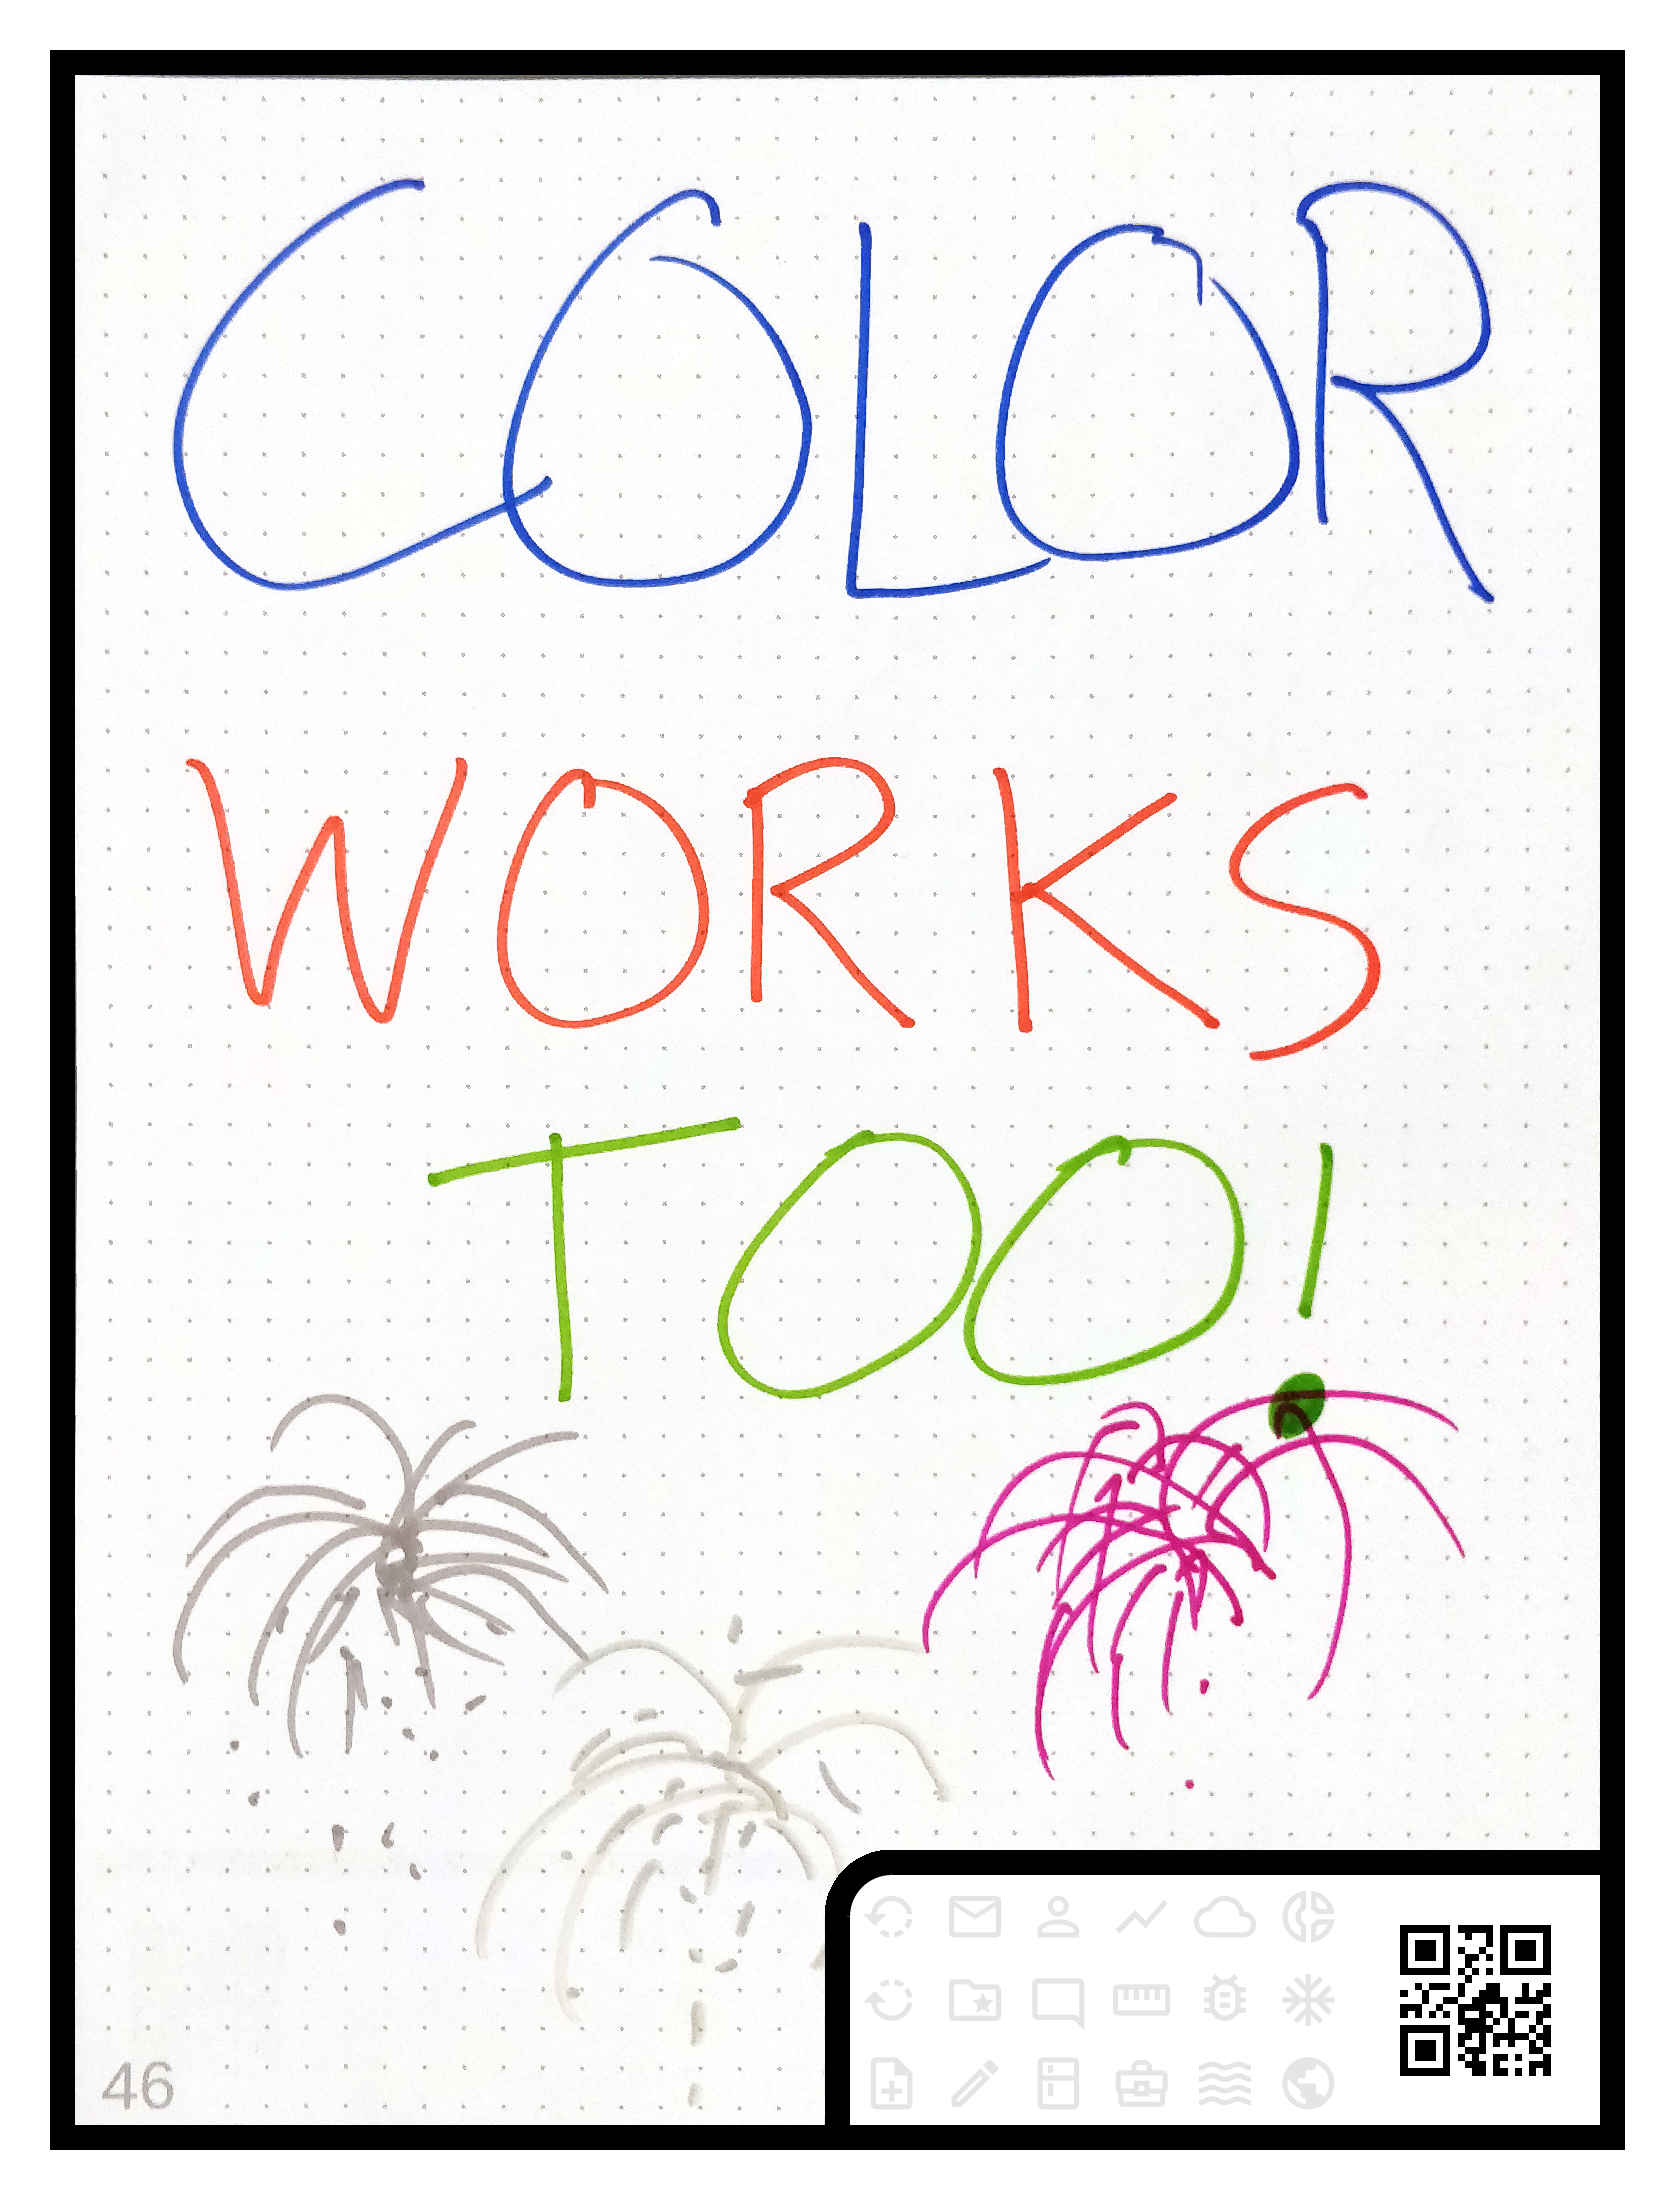 COLOR
WORKS
TOO!
46